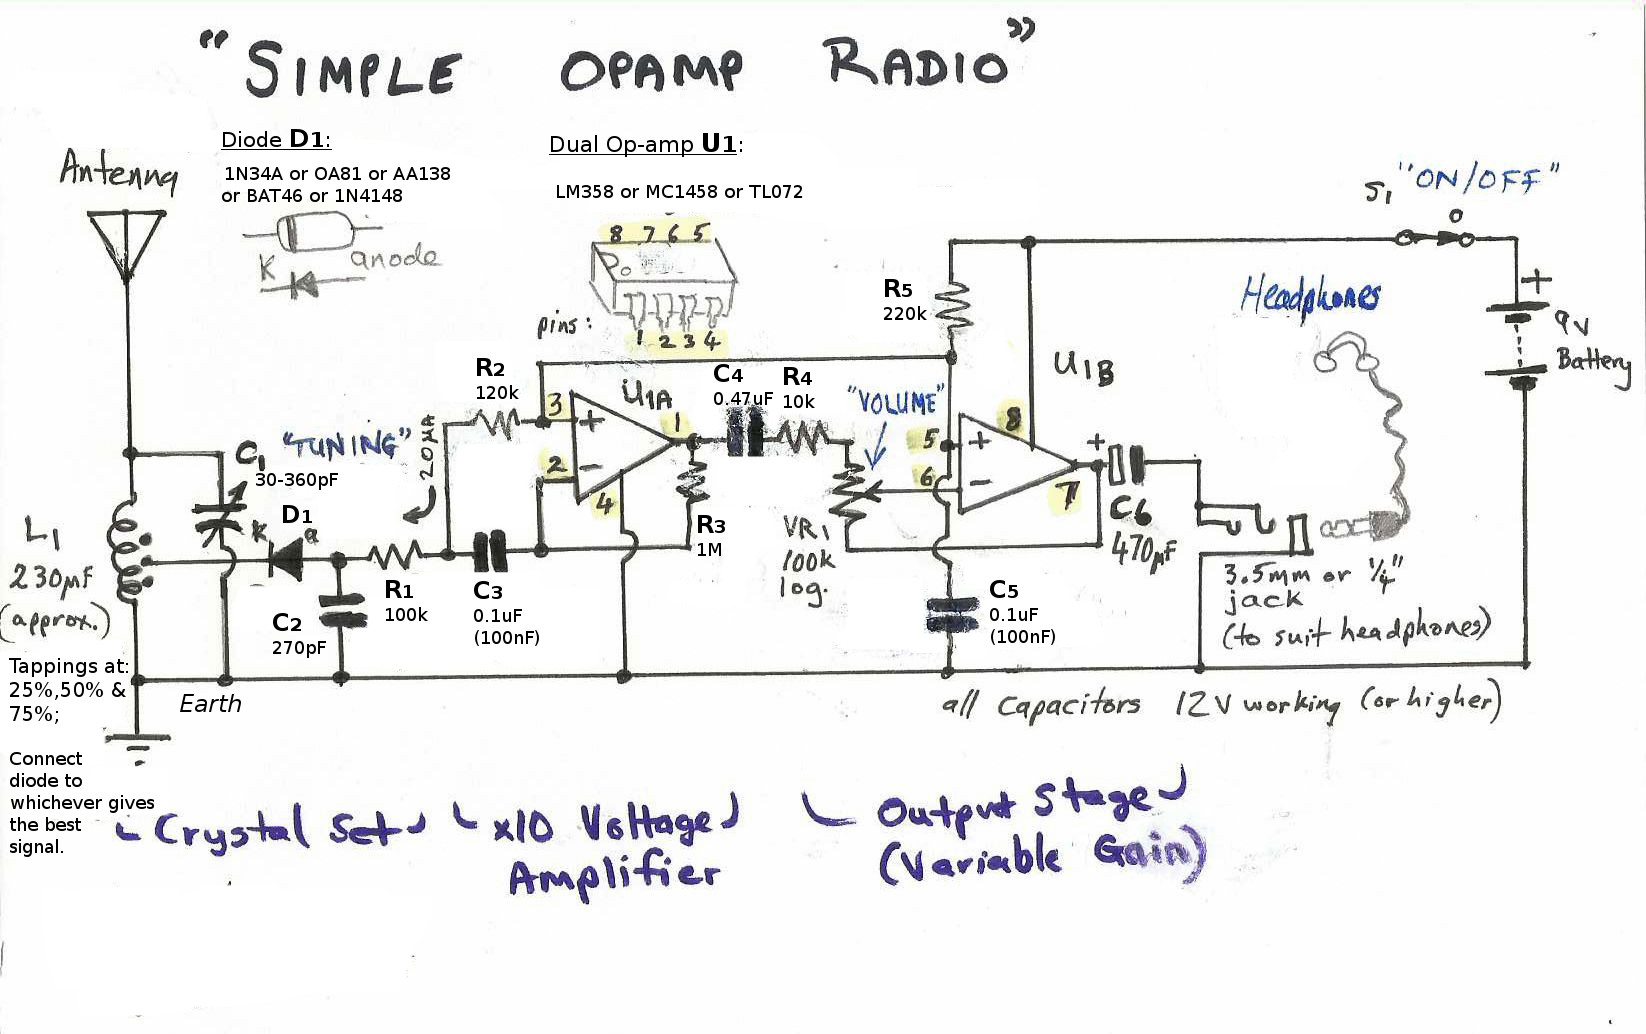 "SIMPLE OPAMP RADIO"
Diode D1:
1N34A or OA81 or AA138
or BAT46 or 1N4148
K
anode
Dual Op-amp U1:
LM358 or MC1458 or TL072
8 7 6 5
pins:
1 2 3 4
Antenna
S1 "ON/OFF"
o
Headphones
+
9V
Battery
R5
220k
U1B
R2
120k
20µA
3
+
U1A
1
2
−
4
C4
0.47uF
R4
10k
"VOLUME"
5
+
8
6
−
7
+
C6
470µF
C1
"TUNING"
30-360pF
D1
K
a
L1
230µF
(approx.)
R3
1M
VR1
100k
log.
R1
100k
C2
270pF
C3
0.1uF
(100nF)
C5
0.1uF
(100nF)
3.5mm or 1/4"
jack
(to suit headphones)
Tappings at:
25%,50% &
75%;
Earth
all Capacitors 12V working (or higher)
Connect
diode to
whichever gives
the best
signal.
Crystal Set
x10 Voltage
Amplifier
Output Stage
(Variable Gain)